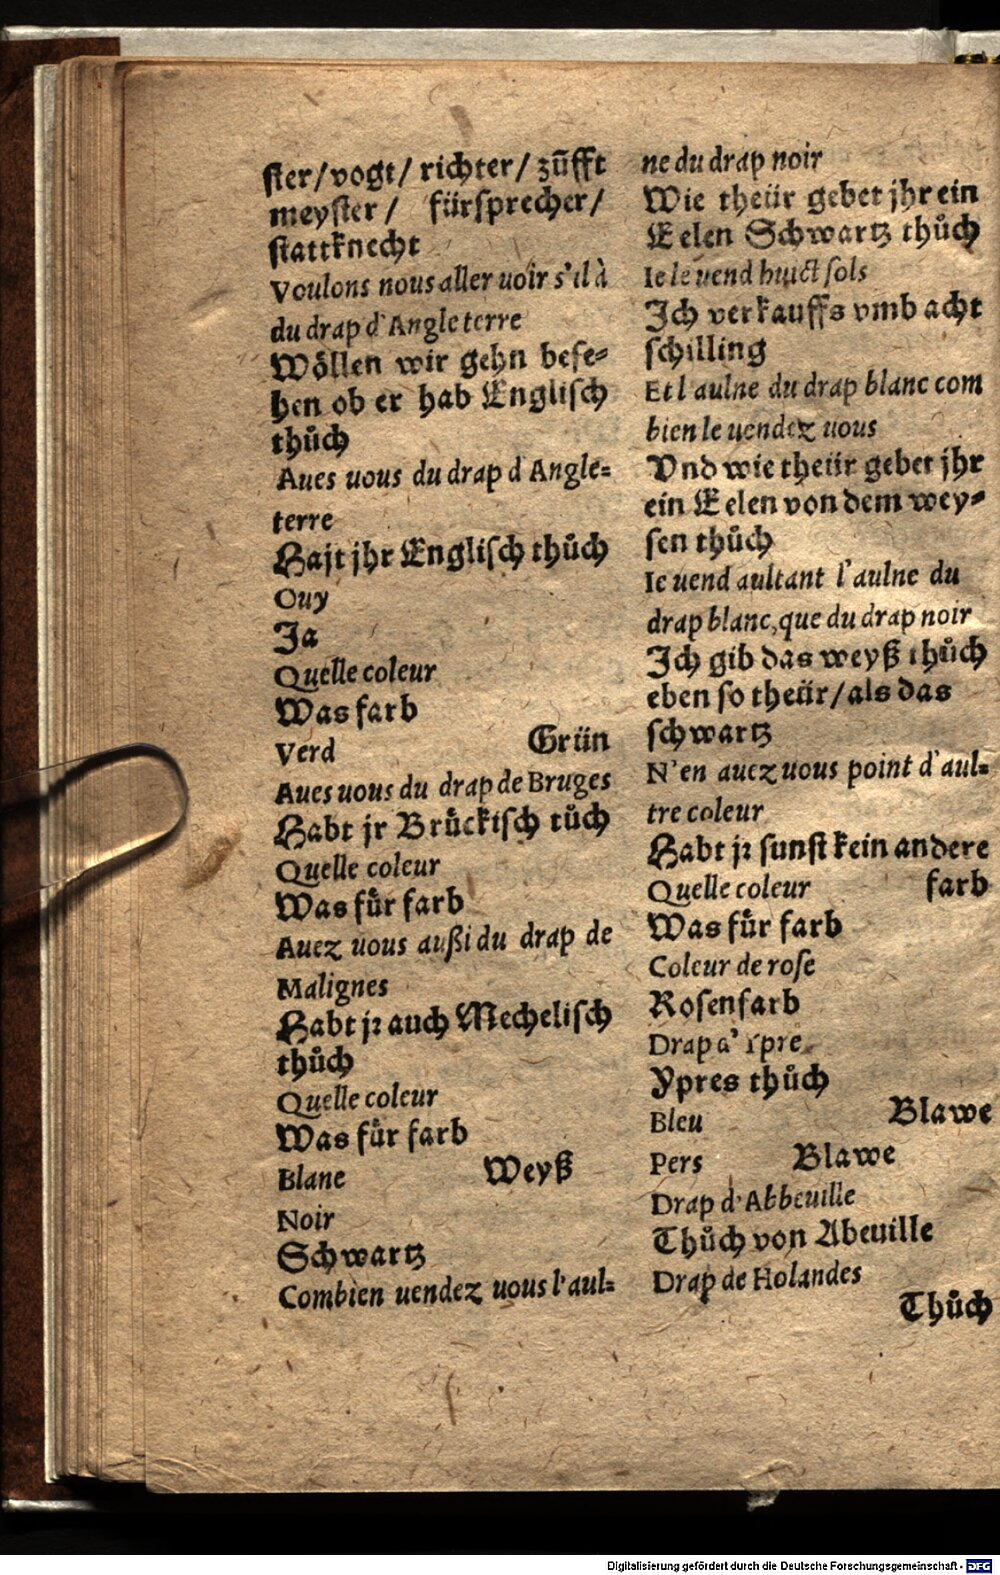 ſter/vogt/ richter/ zūfft
meyſter/ fürſprecher/
ſtattknecht
Voulons nous aller uoir s'il à
du drap d'Angleterre
Wöllen wir gehn beſe⸗
hen ob er hab Engliſch
thůch
Aues uous du drap d Angle⸗
terre
Hajt jhr Engliſch thůch
Ouy
Ja
Quelle coleur
Was farb
Verd Grün
Aues uous du drap de Bruges
Habt jr Brůckiſch tůch
Quelle coleur
Was fůr farb
Auez uous außi du drap de
Malignes
Habt jr auch Mecheliſch
thůch
Quelle coleur
Was fůr farb
Blane Weyß
Noir
Schwartz
Combien uendez uous l'aul⸗
ne du drap noir
Wie theür gebet jhr ein
Eelen Schwartz thůch
Ie le uend huict ſols
Ich verkauffs vmb acht
ſchilling
Et l aulne du drap blanc com
bien le uendez uous
Vnd wie theür gebet jhr
ein Eelen von dem wey⸗
ſen thůch
Ie uend aultant l'aulne du
drap blanc, que du drap noir
Ich gib das weyß thůch
eben ſo theür/als das
ſchwartz
N'en auez uous point d'aul⸗
tre coleur
Habt jr ſunſt kein andere
farb
Quelle coleur
Was fůr farb
Coleur de roſe
Roſenfarb
Drap a' Ypre
Ypres thůch
Bleu Blawe
Pers Blawe
Drap d'Abbeuille
Thůch von Abeuille
Drap de Holandes
Thůch
Digitalisierung gefördert durch die Deutsche Forschungsgemeinschaft - DFG